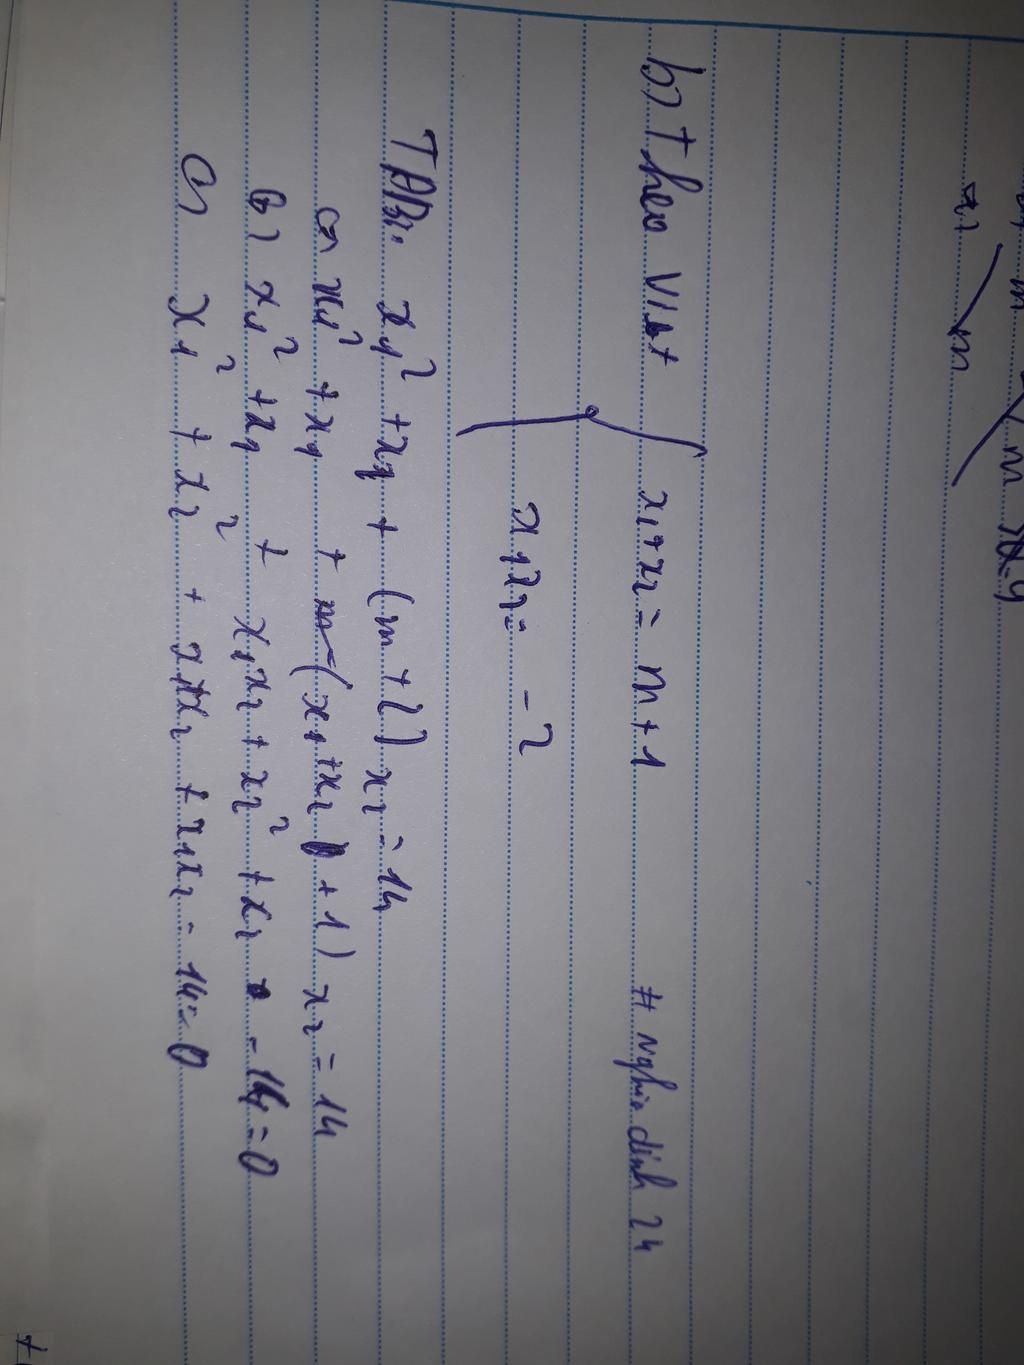 b) Theo Viét { x₁+x₂ = m+1
x₁x₂ = -2
# nghia dinh 24
TĐB: x₁² + x₁ + (m+2) x₂ = 14
(=) x₁² + x₁ + (x₁+x₂ +1) x₂ = 14
(=) x₁² + x₁ + x₁x₂ + x₂² + x₂ - 14 = 0
(=) x₁² + x₂² + x₁+x₂ + x₁x₂ - 14 = 0